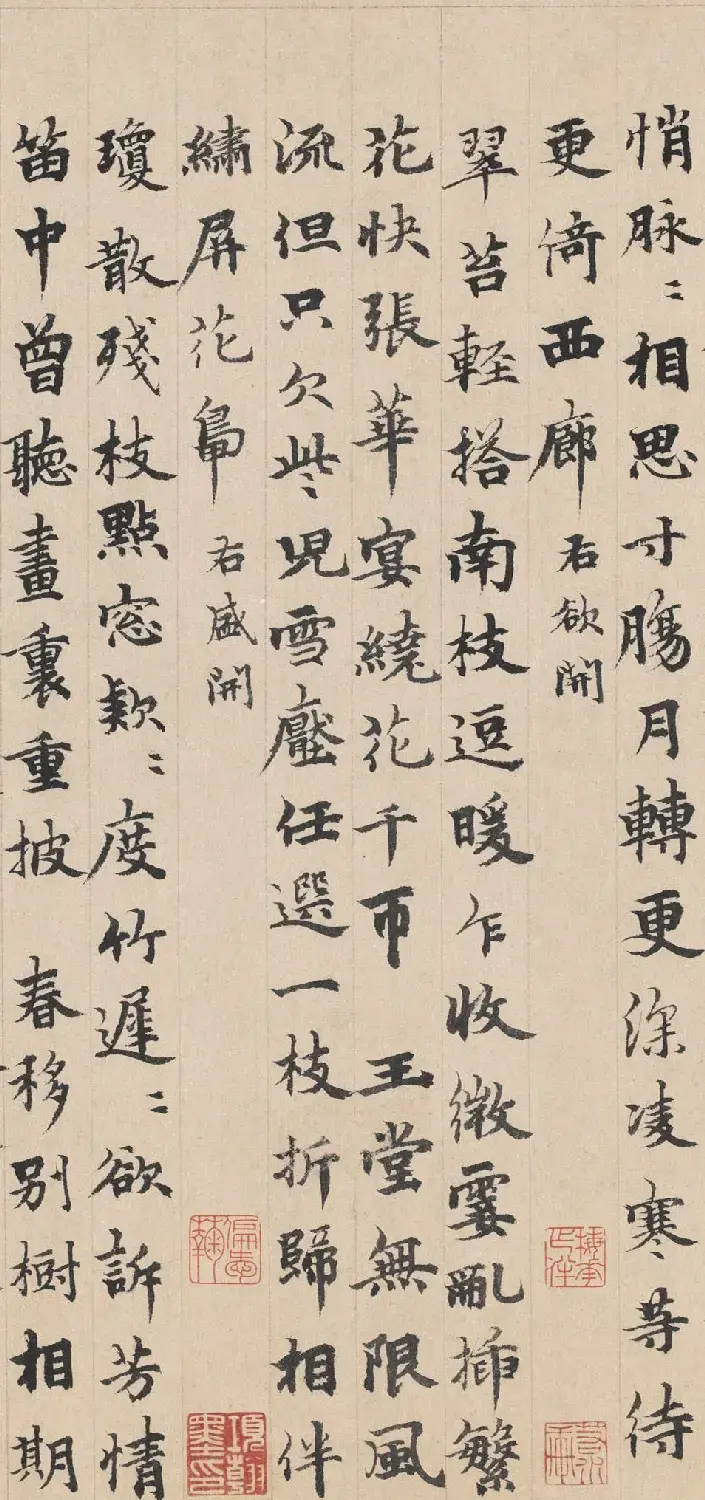 悄脉〻相思寸腸月轉更深凌寒等待
更倚西廊 右欲開
翠苔輕搭南枝逗暖乍收微霎亂插繁
花快張華宴繞花千帀 玉堂無限風
流但只欠些〻兒雪壓任選一枝折歸相伴
繡屏花鴨 右盛開
瓊散殘枝點窓款〻度竹遲〻欲訴芳情
笛中曾聽畫裏重披 春移別樹相期